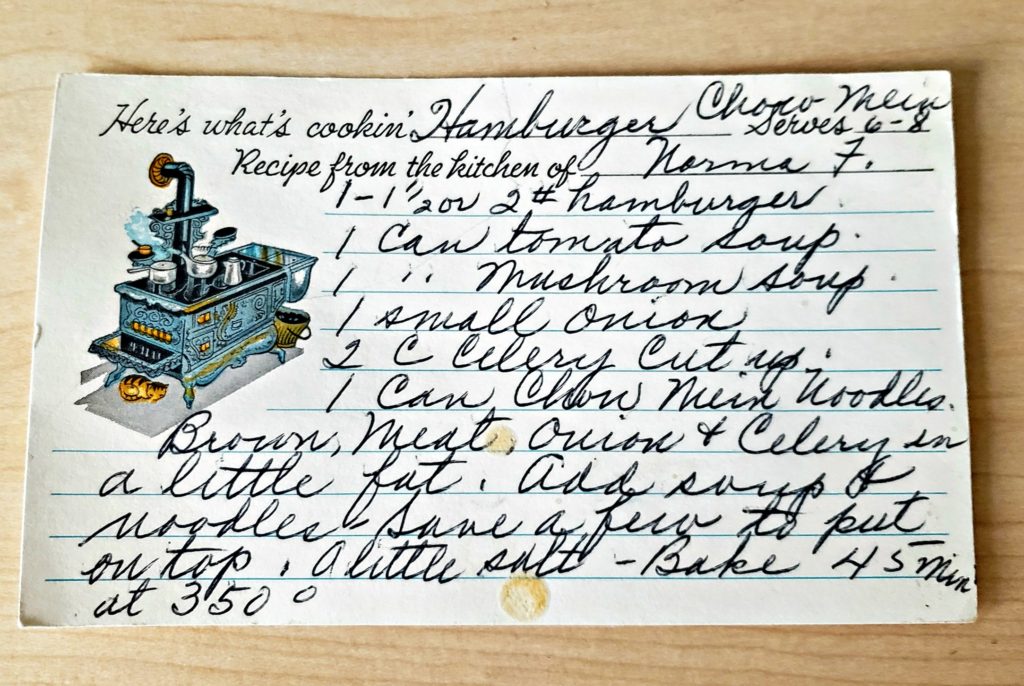 Here's what's cookin' Hamburger Chow Mein
Serves 6-8
Recipe from the kitchen of Norma F.
1-1 1/2 or 2# hamburger
1 Can tomato soup.
1 " Mushroom soup
1 small onion
2 C Celery Cut up.
1 Can Chow Mein Noodles.
Brown, Meat, Onion & Celery in
a little fat. Add soup &
noodles - Save a few to put
on top. A little salt - Bake 45 Min
at 350°